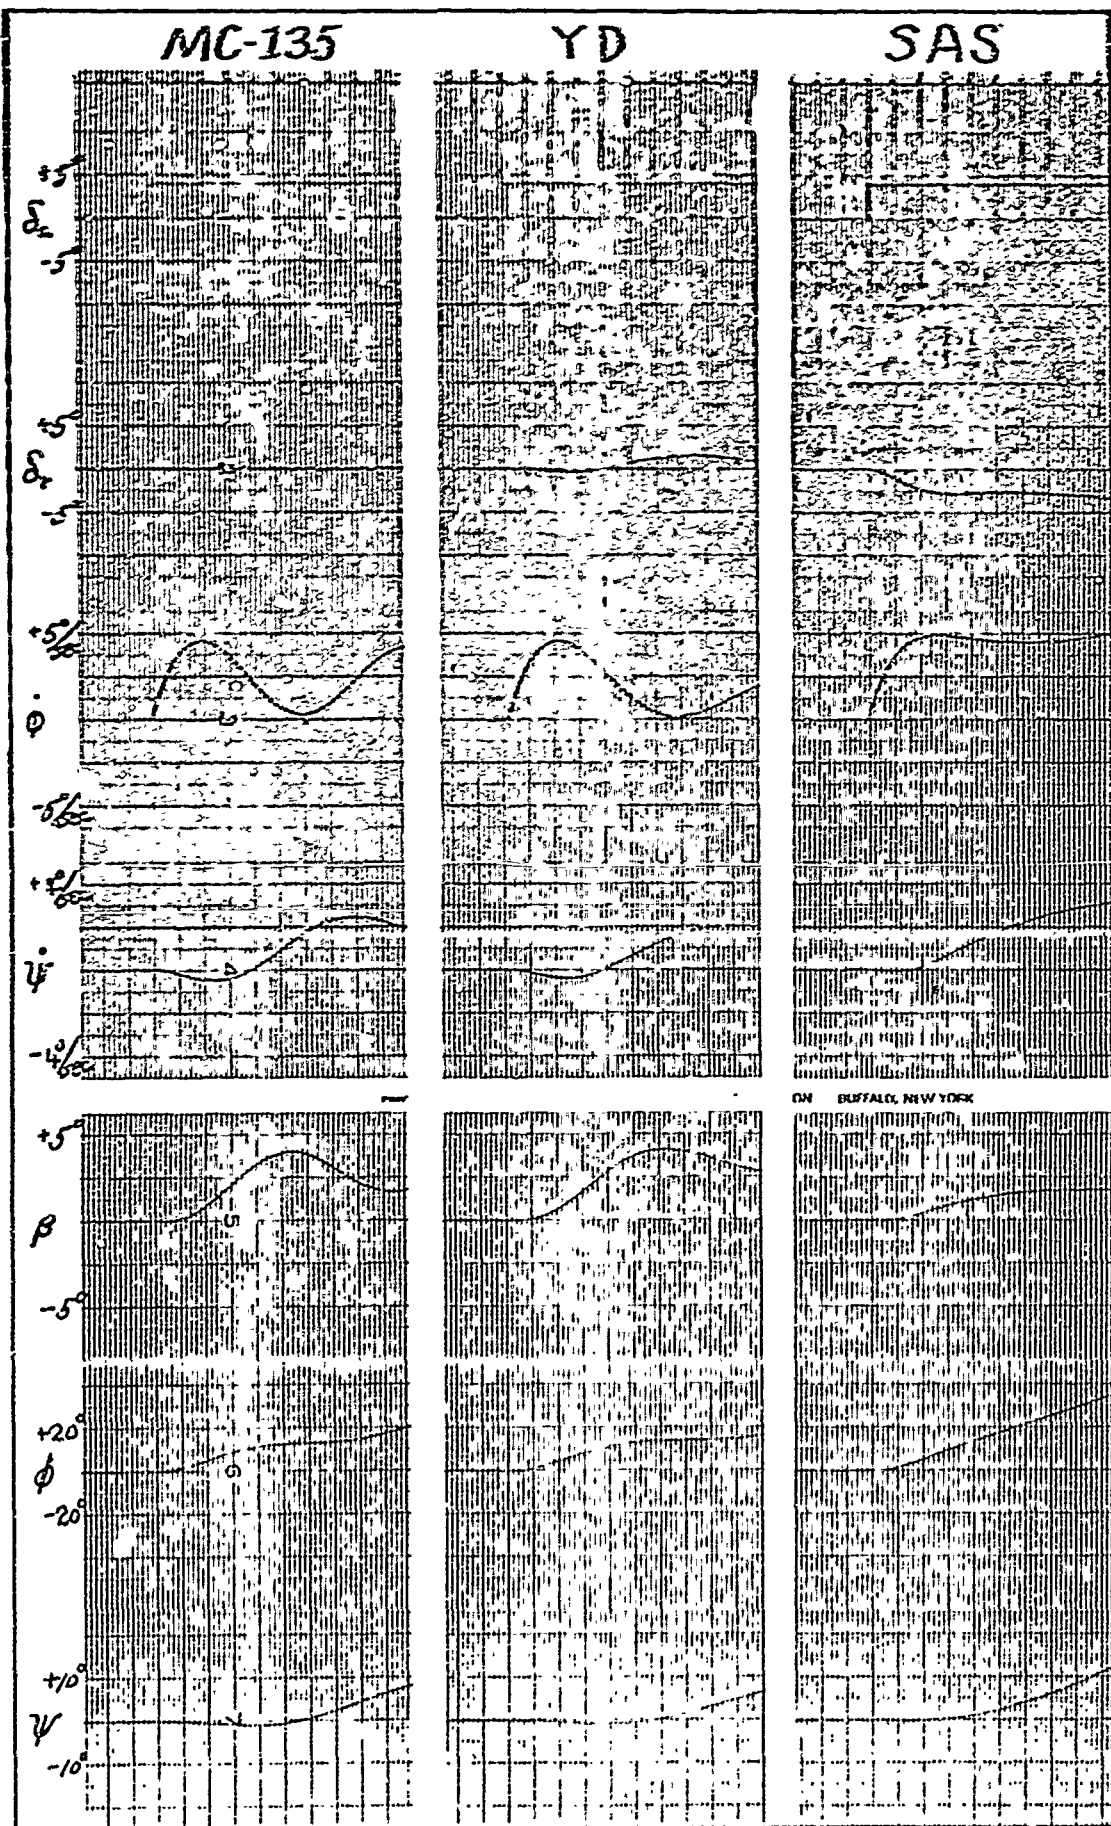 MC-135 YD SAS
+5°
δ
-5°
+5°
δr
-5°
+5°/sec
φ̇
-5°/sec
+4°/sec
4
ψ̇
-4°/sec
ON BUFFALO, NEW YORK
+5°
5
β
-5°
+20°
6
ϕ
-20°
+10°
7
ψ
-10°